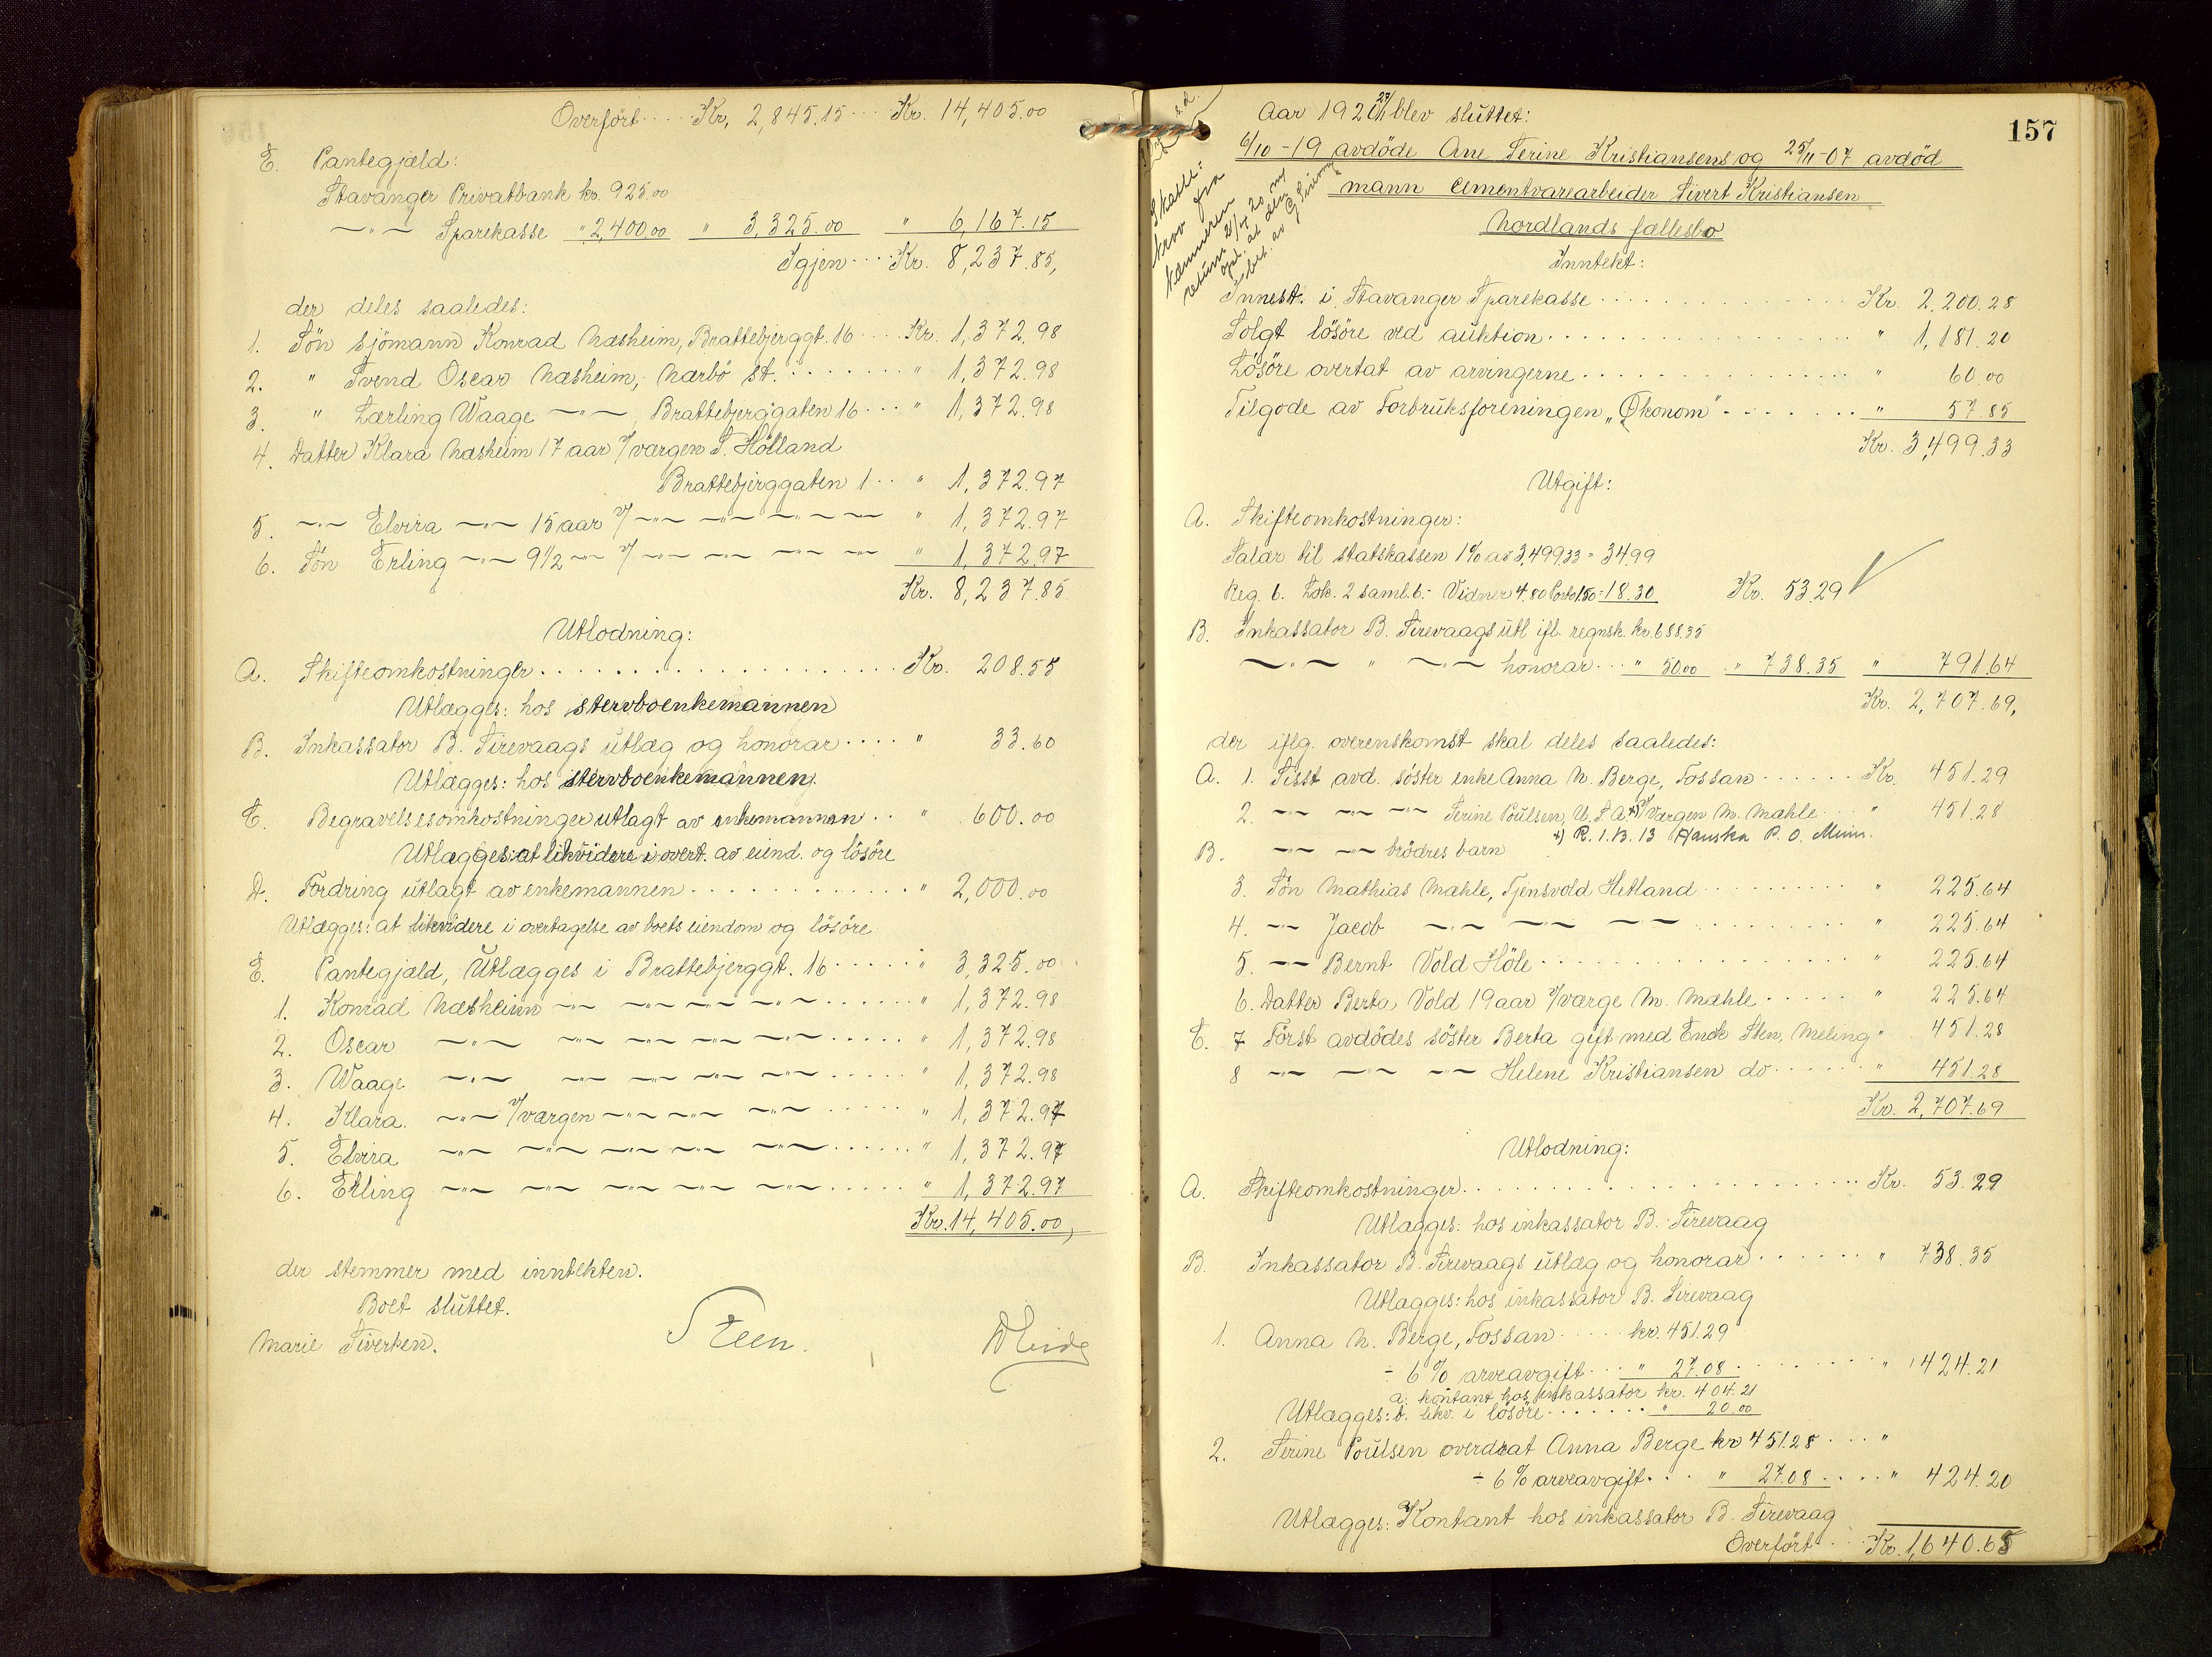 Overfört .... Kr. 2,845.15 ... Kr. 14,405.00
E. Pantegjæld:
Stavanger Privatbank kr. 925.00
—"— Sparekasse " 2,400.00 " 3,325.00 " 6,167.15
Igjen .... Kr. 8,237.85,
der deles saaledes:
1. Sön sjömann Konrad Næsheim, Brattebjerggt. 16 .... Kr. 1,372.98
2. " Svend Oscar Næsheim, Nærbö st. ........ " 1,372.98
3. " Lærling Waage —"— , Brattebjerggaten 16 ... " 1,372.98
4. Datter Klara Næsheim 17 aar v/ værgen S. Hölland
Brattebjerggaten 1 .. " 1,372.97
5. —"— Elvira —"— 15 aar v/ —"— —"— —"— —"— " 1,372.97
6. Sön Erling —"— 9 1/2 —"— v/ —"— —"— —"— —"— " 1,372.97
Kr. 8,237.85
Utlodning:
A. Skifteomkostninger .................. Kr. 208.55
Utlægges: hos stervboenkemannen
B. Inkassator B. Sirevaags utlæg og honorar .... " 33.60
Utlægges: hos stervboenkemannen.
C. Begravelsesomkostninger utlagt av enkemannen .. " 600.00
Utlægges: at likvidere i overt. av eiend. og lösöre
D. Fordring utlagt av enkemannen ............ " 2,000.00
Utlægges: at likvidere i overtagelse av boets eiendom og lösöre
E. Pantegjæld, Utlægges i Brattebjerggt. 16 ..... " 3,325.00
1. Konrad Næsheim —"— —"— —"— —"— ...... " 1,372.98
2. Oscar —"— —"— —"— —"— —"— ..... " 1,372.98
3. Waage —"— —"— —"— —"— —"— ..... " 1,372.98
4. Klara. —"— v/ værgen —"— —"— —"— ..... " 1,372.97
5. Elvira —"— —"— —"— —"— —"— ...... " 1,372.97
6. Erling —"— —"— —"— —"— —"— ..... " 1,372.97
Kr. 14,405.00,
der stemmer med inntekten.
Boet sluttet.
Marie Siverken. Steen.
157
Skatte:
krav fra
kæmneren
Aar 1920 27/11 blev sluttet:
6/10-19 avdöde Ane Serine Kristiansens og 25/11-07 avdöd
mann cementvarearbeider Sivert Kristiansen
Nordlands fællesbo
Inntekt:
Innest. i Stavanger Sparekasse ............... Kr. 2,200.28
Solgt lösöre ved auktion .................. " 1,181.20
Lösöre overtat av arvingerne ............... " 60.00
Tilgode av Forbruksforeningen „Økonom" ........ " 57.85
Kr. 3,499.33
Utgift:
A. Skifteomkostninger:
Salær til statskassen 1% av 3,499.33 = 34.99
Reg. 6. Lok. 2 saml. 6.- Vidner 4.80 Porto 1.50 = 18.30 Kr. 53.29
B. Inkassator B. Sirevaags utl ifl. regnsk. kr. 688.35
—"— " —"— honorar ... " 50.00 .. " 738.35 " 791.64
Kr. 2,707.69,
der iflg. overenskomst skal deles saaledes:
A. 1. Sisst avd. söster enke Anna N. Berge, Fossan ...... Kr. 451.29
2. —"— —"— —"— Serine Poulsen, U.S.A. x) v/ Værgen M. Mæhle ... " 451.28
x) R. 1. B. 13 Hanska P. O. Minn.
B. —"— —"— brödres barn
3. Sön Mathias Mæhle, Tjensvold Hetland .......... " 225.64
4. —"— Jacob —"— —"— —"— .......... " 225.64
5. —"— Bernt Vold Höle .................. " 225.64
6. Datter Berta Vold 19 aar v/ værge M. Mæhle ..... " 225.64
C. 7 Först avdödes söster Berta gift med Enok Sten, Meling " 451.28
8 —"— —"— —"— Helene Kristiansen do ...... " 451.28
Kr. 2,707.69
Utlodning:
A. Skifteomkostninger ........................ Kr. 53.29
Utlægges: hos inkassator B. Sirevaag
B. Inkassator B. Sirevaags utlæg og honorar ...... " 738.35
Utlægges: hos inkassator B. Sirevaag
1. Anna N. Berge, Fossan ..... kr. 451.29
÷ 6% arveavgift ... " 27.08 .......... " 424.21
a. kontant hos inkassator kr. 404.21
Utlægges: b. likv. i lösöre ....... " 20.00
2. Serine Poulsen overdrat Anna Berge kr 451.28 .... "
÷ 6% arveavgift ... " 27.08 .... " 424.20
Utlægges: Kontant hos inkassator B. Sirevaag
Overfört .. Kr. 1,640.65